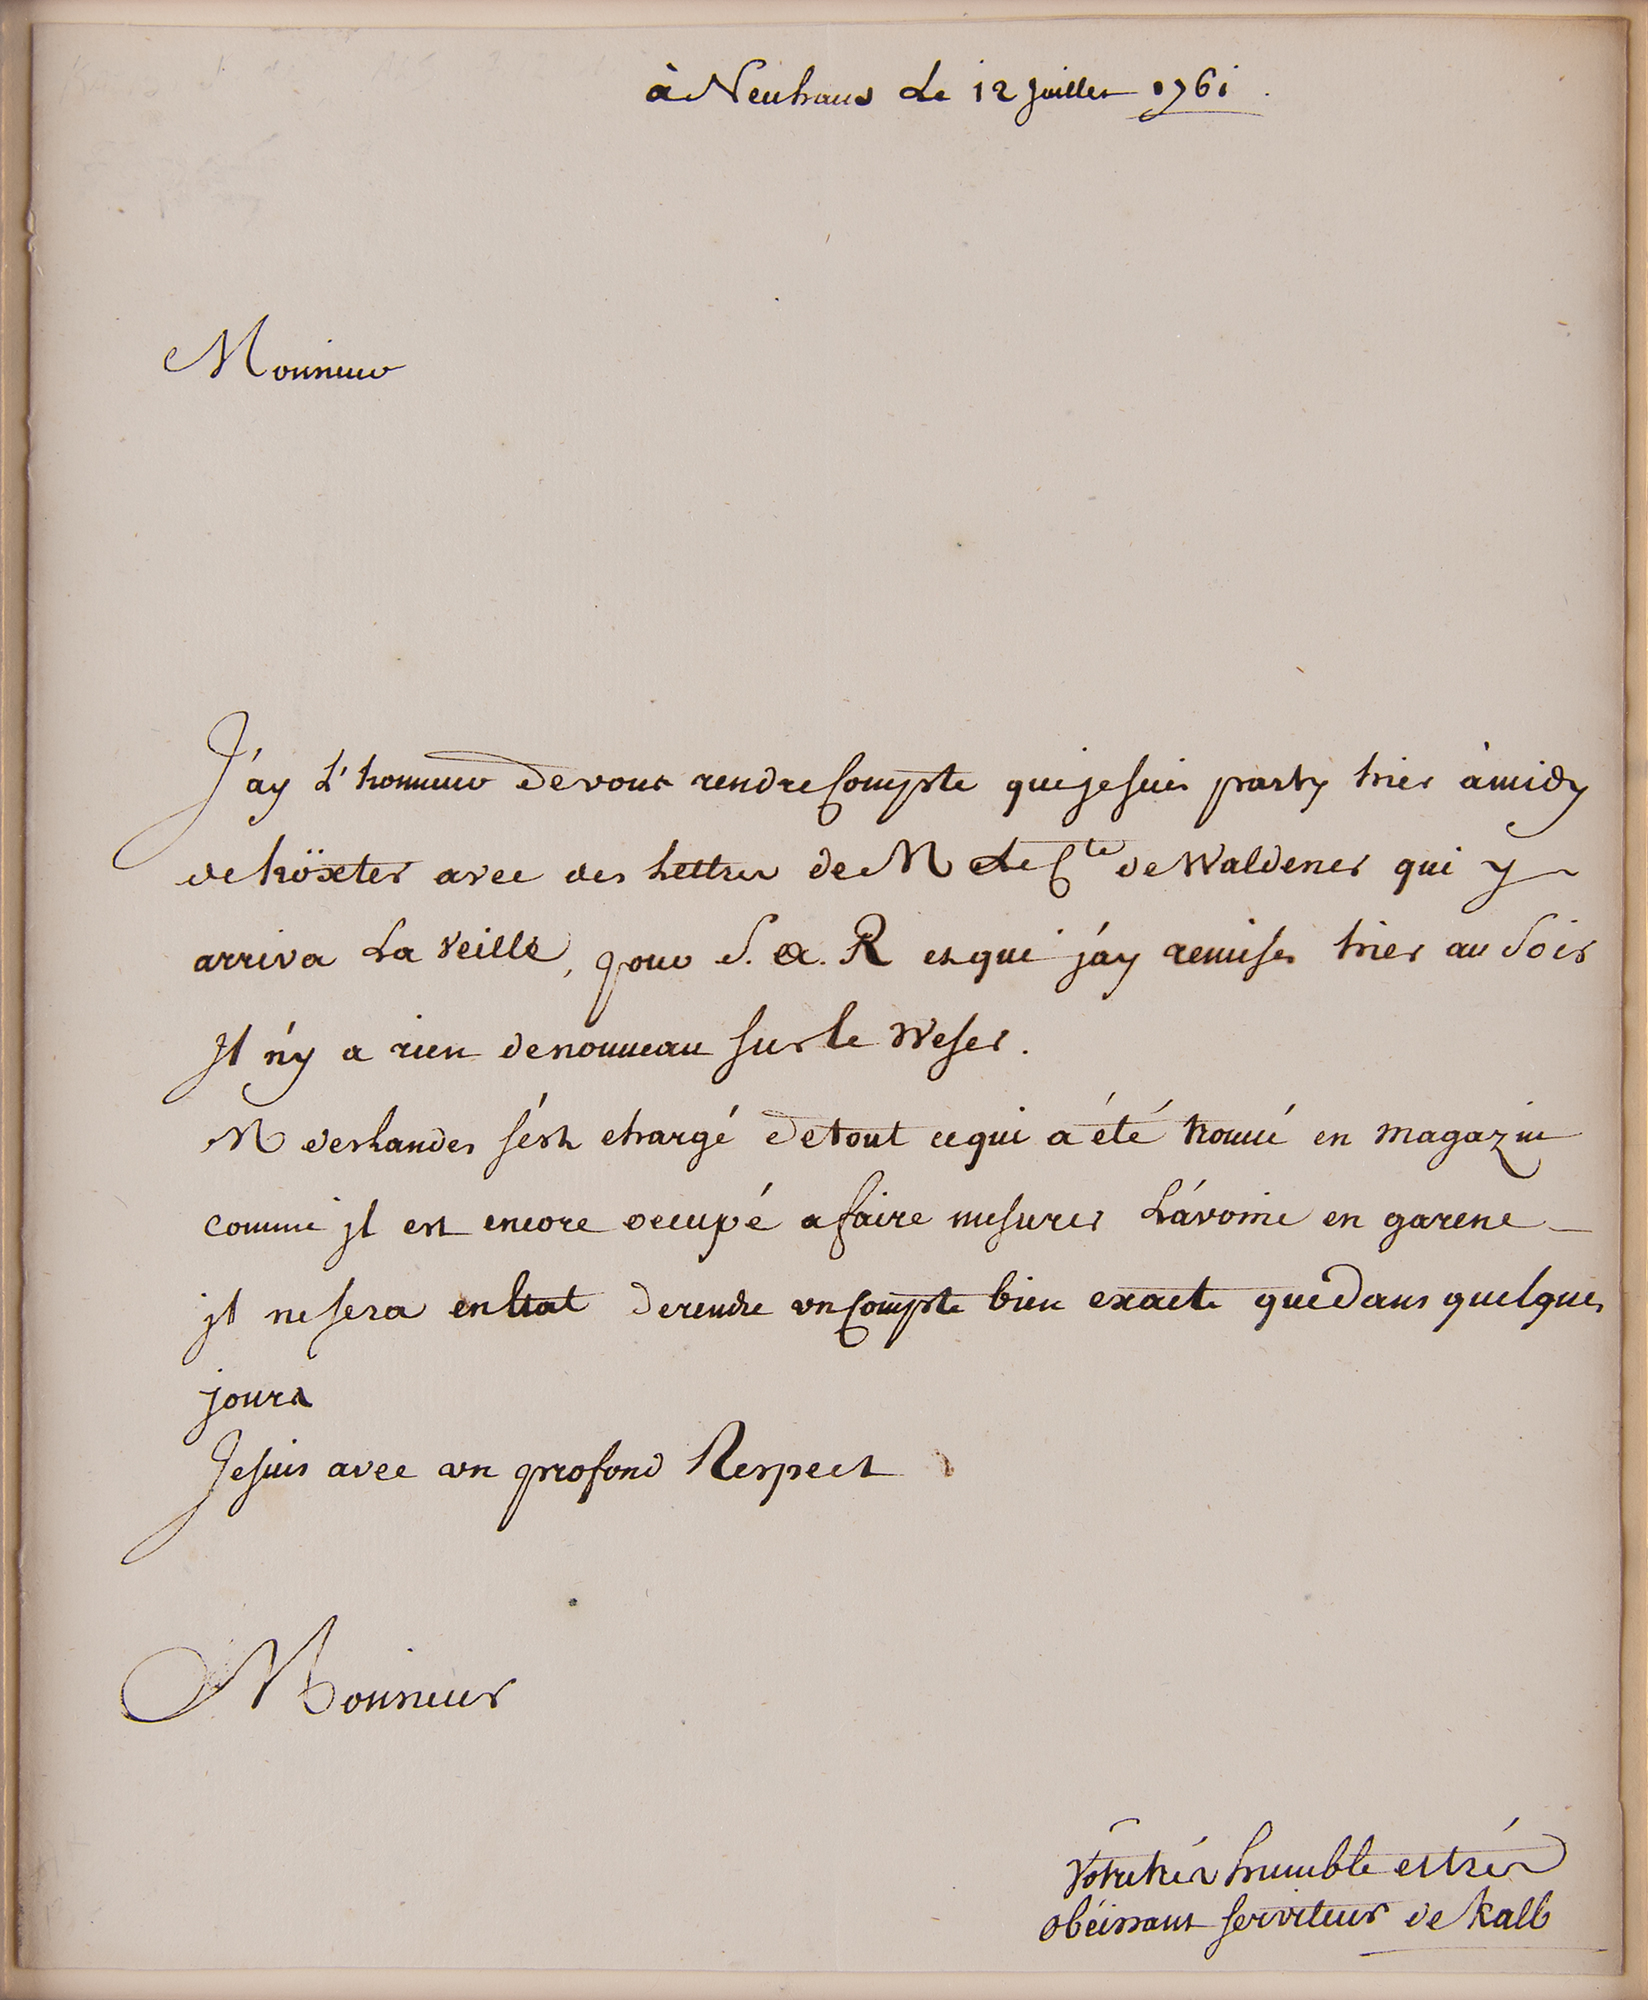 à Neuhaus Le 12 Juillet 1761.
Monsieur
J'ay L'honneur de vous rendre Compte que je suis party hier à midy
de höxter avec des Lettres de M Le Cte de Waldener qui y
arriva La veille, pour S. A. R et que j'ay remises hier au Soir
Il n'y a rien de nouveau sur le Weser.
M deslandes s'est chargé de tout ce qui a été trouvé en magazin
comme jl est encore occupé a faire mesurer L'avoine en garene
jl ne sera en Etat de rendre un Compte bien exacte que dans quelques
jours
Je suis avec un profond Respect
Monsieur
Votre trés humble et trés
obéissant serviteur de Kalb